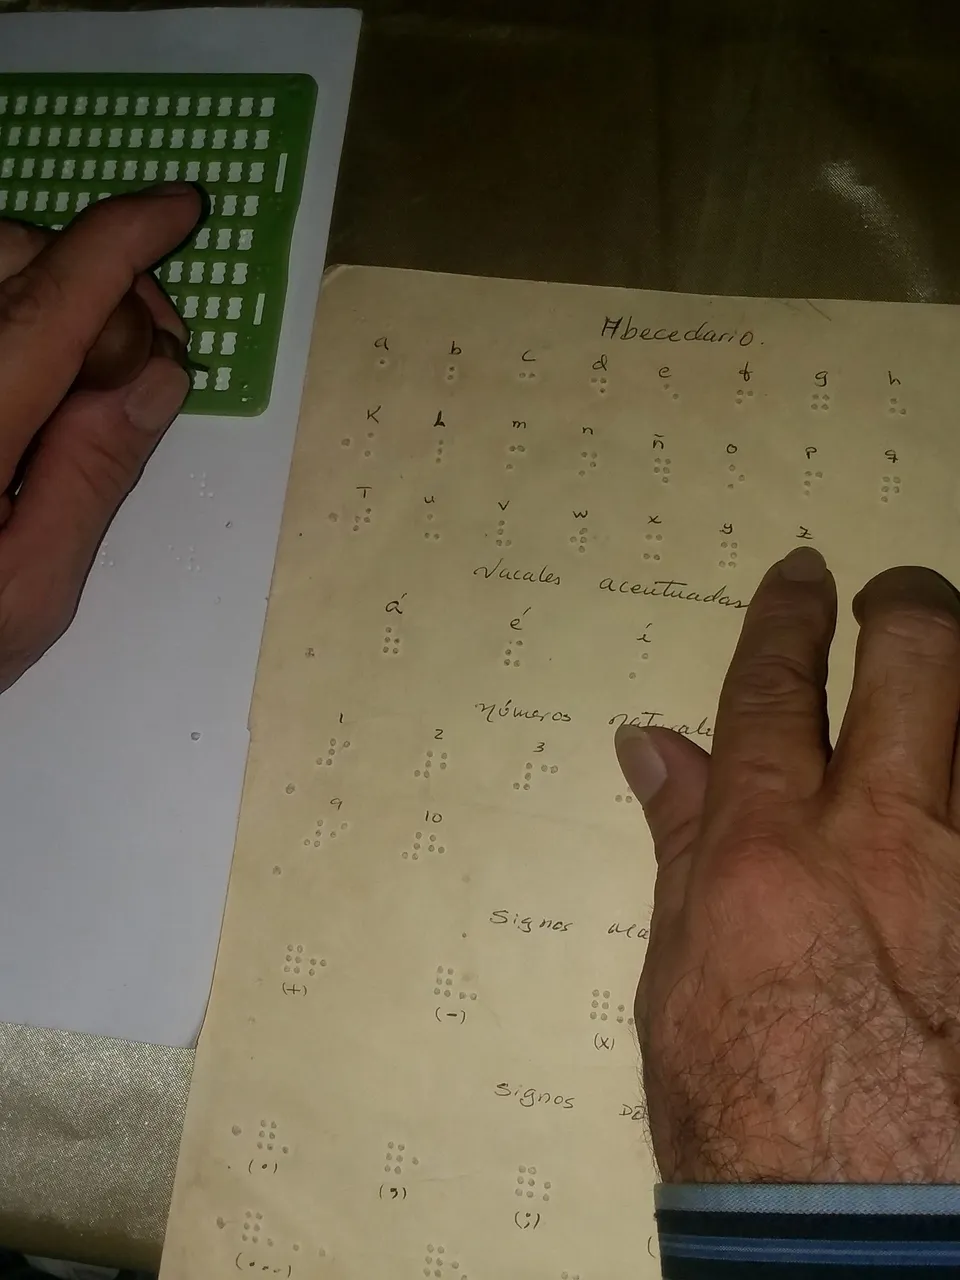 Abecedario.
a b c d e f g h
K L m n ñ o p q
T u v w x y z
Vacales acentuadas
á é í
Números
1 2 3
9 10
Signos
(+) (-) (x)
Signos
(.) (,) (;)
(...)